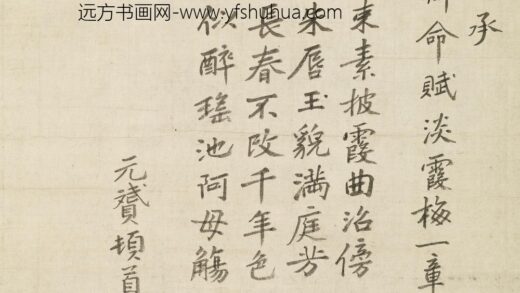 远方书画网-www.yfshuhua.com
承
命賦淡霞梅一章
束素披霞曲沼傍
朱唇玉貌滿庭芳
長春不改千年色
似醉瑤池阿母觴
元贇頓首